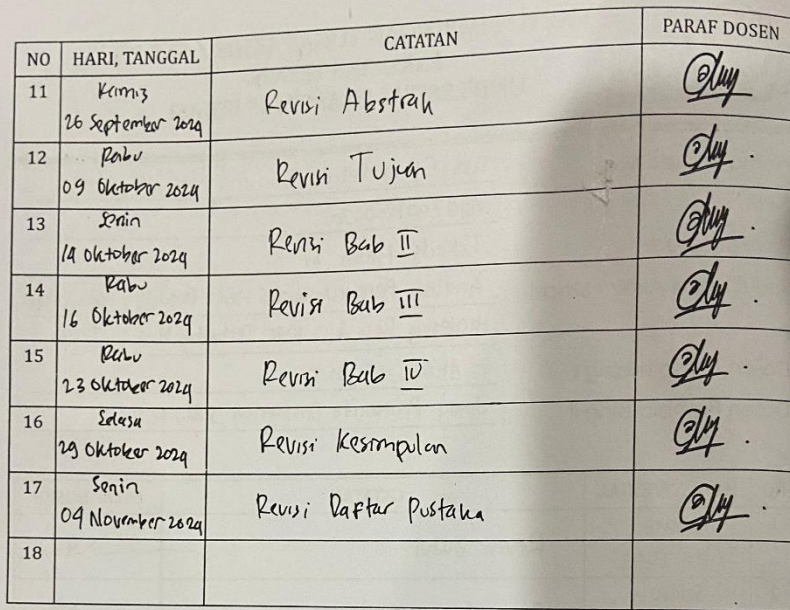 NO HARI, TANGGAL CATATAN PARAF DOSEN
11 Kamis
26 September 2024 Revisi Abstrak
12 Rabu
09 Oktober 2024 Revisi Tujuan
13 Senin
14 Oktober 2024 Revisi Bab II
14 Rabu
16 Oktober 2024 Revisi Bab III
15 Rabu
23 Oktober 2024 Revisi Bab IV
16 Selasa
29 Oktober 2024 Revisi Kesimpulan
17 Senin
04 November 2024 Revisi Daftar Pustaka
18